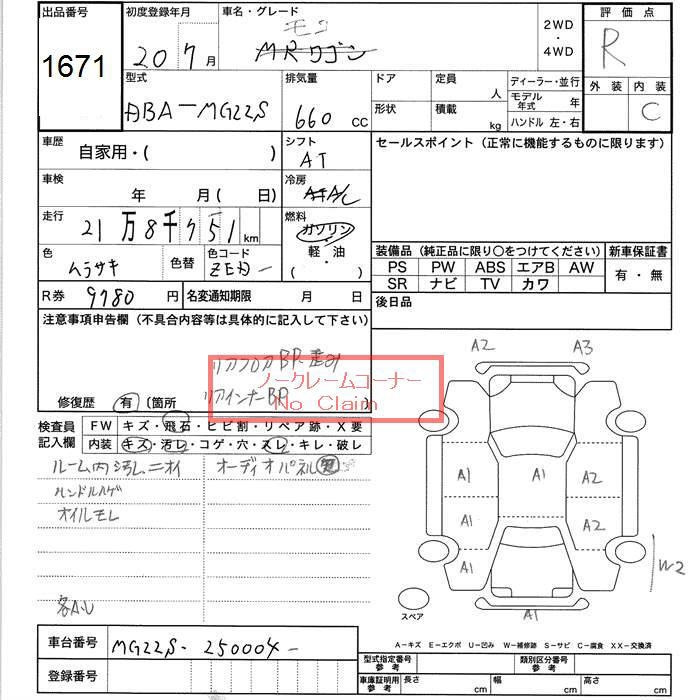 出品番号 初度登録年月 車名・グレード 2WD・4WD 評価点
1671 20 7月 モコ MRワゴン R
外装 内装
C
型式 排気量 ドア 定員 人 ディーラー・並行
ABA-MG22S 660 CC 形状 積載 kg モデル年式 年
ハンドル 左・右
車歴 自家用・( ) シフト AT セールスポイント(正常に機能するものに限ります)
車検 年 月( 日) 冷房 A/C
走行 21万8千751km 燃料 ガソリン・軽・油( )
色 ムラサキ 色替 色コード ZEA
装備品(純正品に限り〇をつけてください) 新車保証書
PS PW ABS エアB AW 有・無
SR ナビ TV カワ
R券 9780円 名変通知期限 月 日 後日品
注意事項申告欄(不具合内容等は具体的に記入して下さい)
リアフロアBP歪み
リアインナーBP
ノークレームコーナー
No Claim
修復歴 有 (箇所
検査員記入欄 FW キズ・飛石・ヒビ割・リペア跡・X要
内装 キズ・汚レ・コゲ・穴・スレ・キレ・破レ
ルーム内汚レニオイ オーディオパネル欠
ハンドルハゲ
オイルモレ
A2 A3
A1 A1 A2
A1 A2
A1 A1 W2
A1
スペア
A-キズ E-エクボ U-凹み W-補修跡 S-サビ C-腐食 XX-交換済
車台番号 MG22S-250004-
登録番号
型式指定番号参考 類別区分番号参考
車庫証明用参考 長さ cm 幅 cm 高さ cm